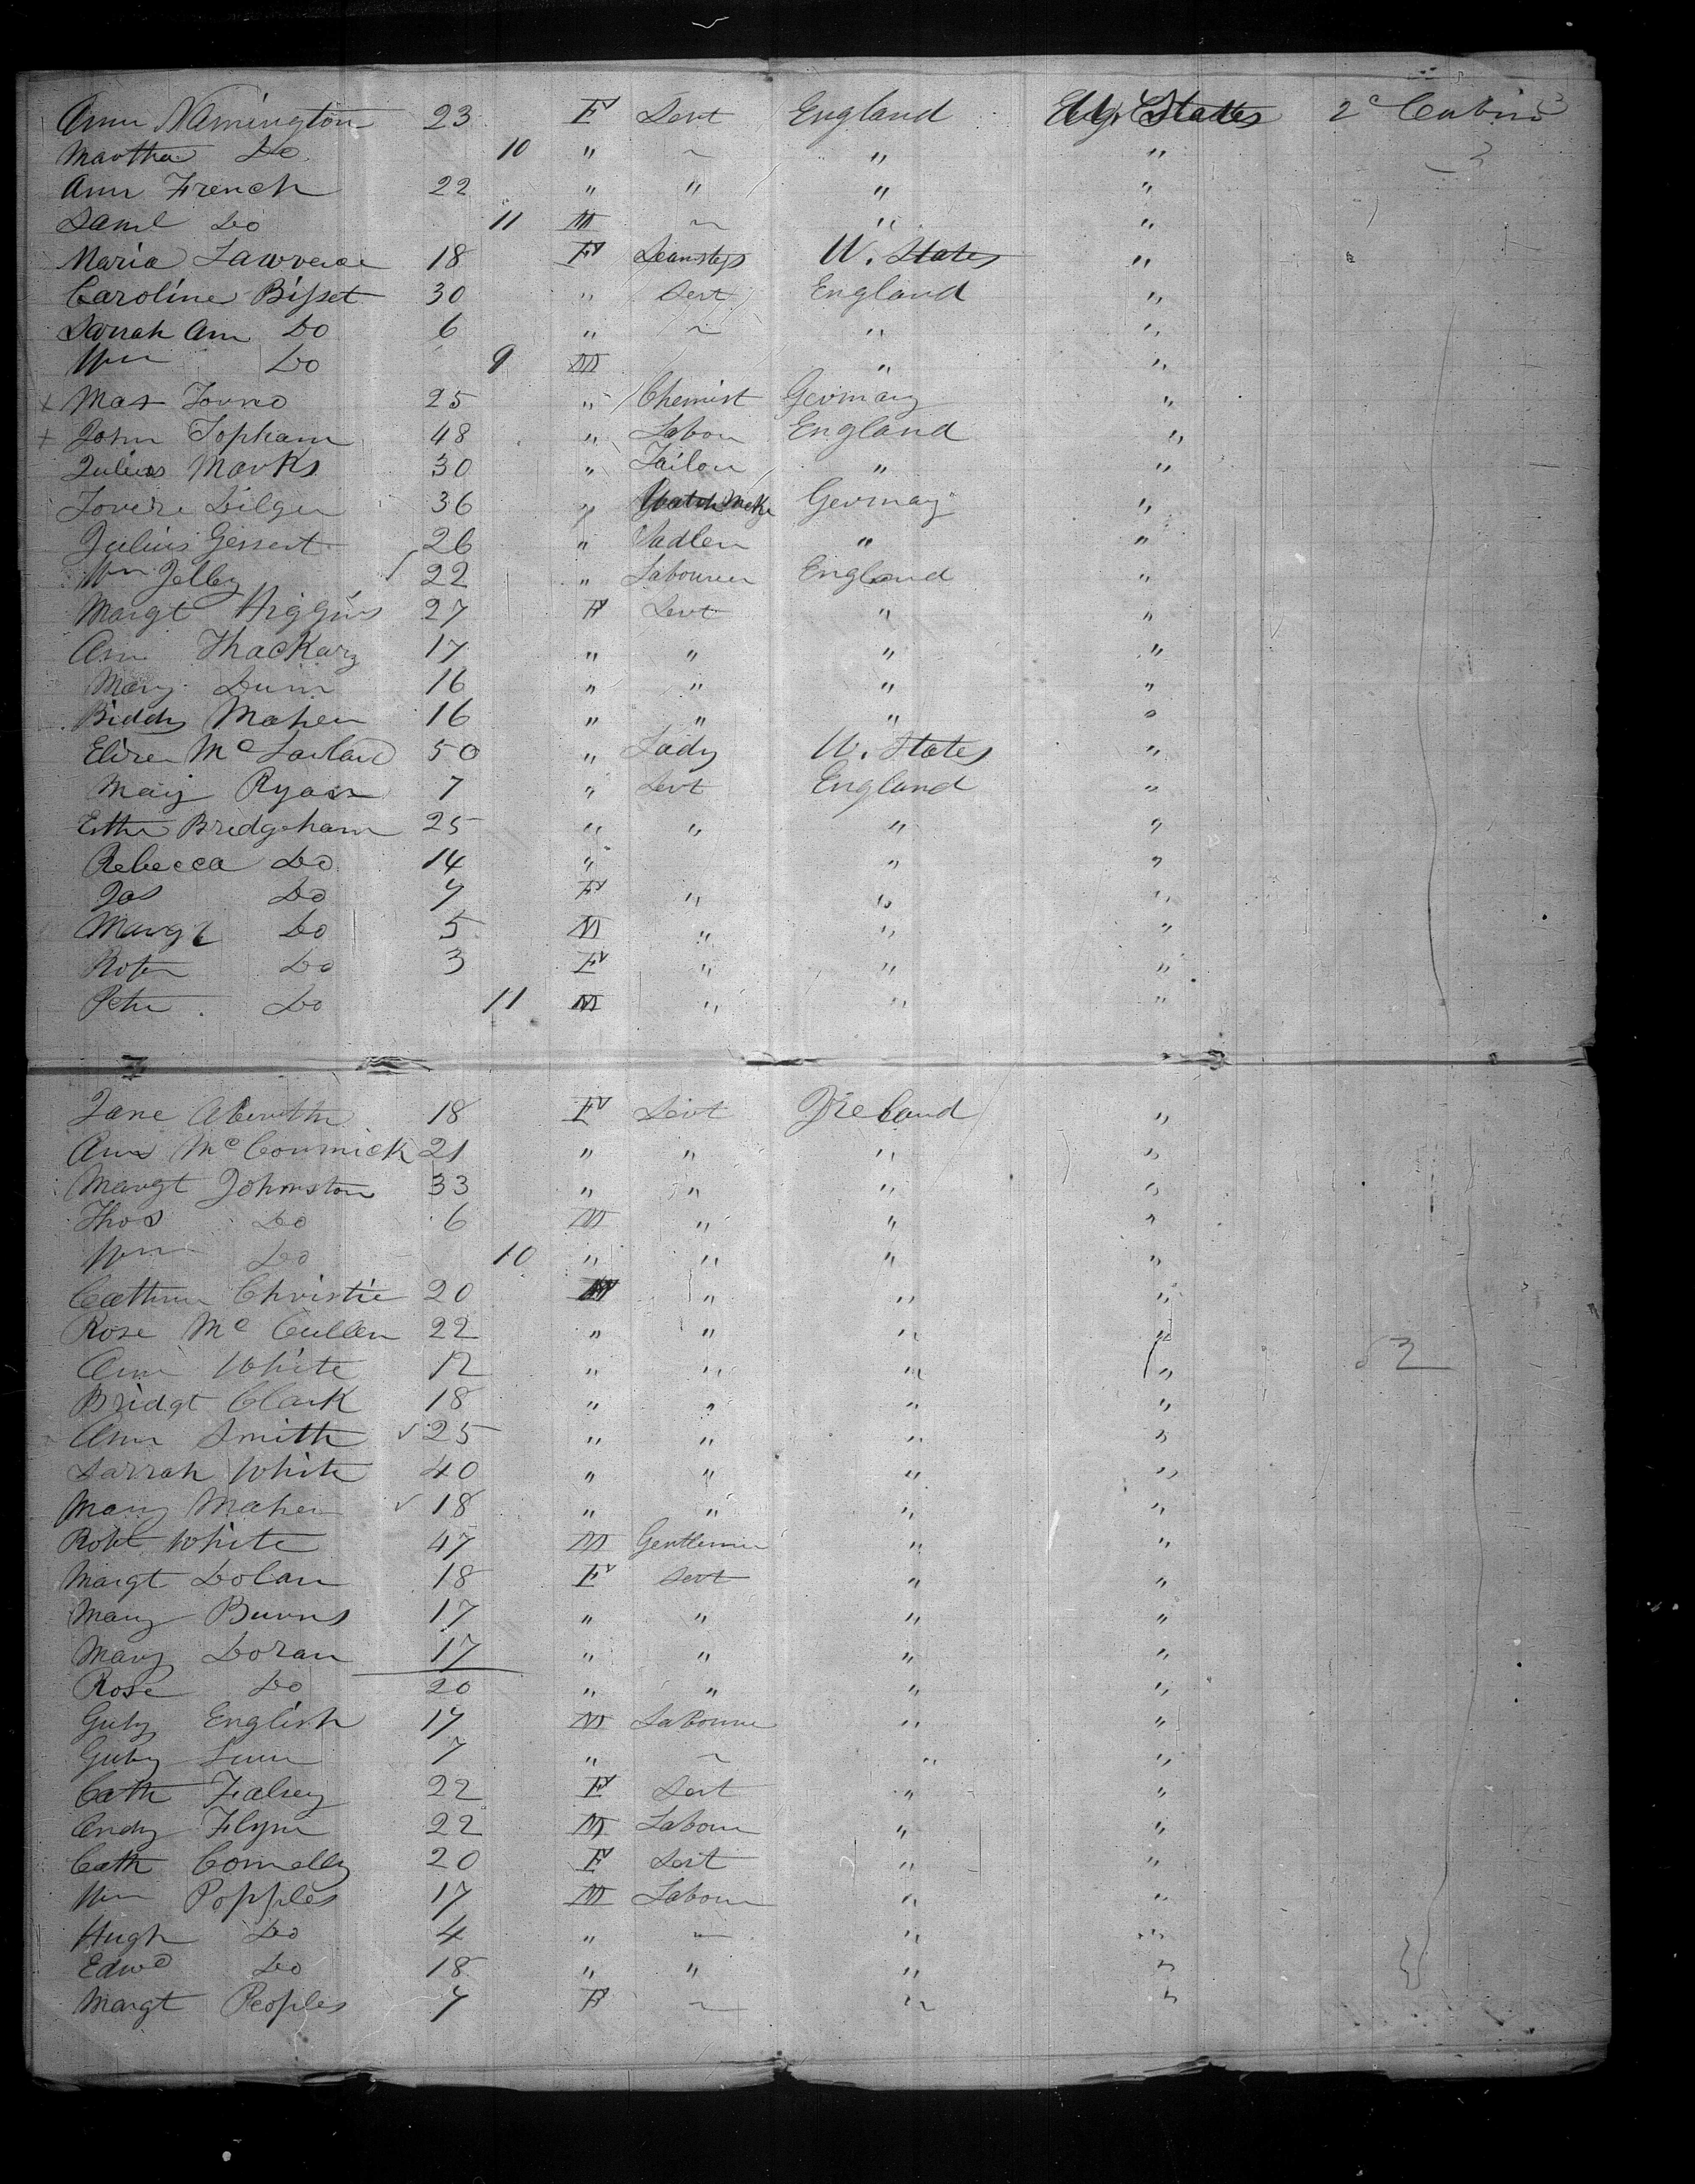 Ann Namington 23 F Sert England U. States 2c Cabin
Martha Do 10 " ~ " "
Ann French 22 " " " "
Saml Do 11 M ~ " "
Maria Lawrence 18 F U. States "
Caroline Bisset 30 " Sert England "
Sarrah Ann Do 6 " ~ " "
Wm Do 9 M " "
Max 25 " Chemist Germany "
John Topham 48 " Labou England "
Julius Marks 30 " Tailou " "
Dilger 36 " Watch Make Germany "
Julius Gessert 26 " Sadler " "
Wm Jelley 22 " Labourer England "
Margt Higgins 27 F Sert " "
Ann Thackary 17 " " " "
Mary Dunn 16 " " " "
Biddy Maher 16 " " " "
Mc 50 " Lady U. States "
Mary Ryan 7 " Sert England "
Esther Bridgeham 25 " " " "
Rebecca Do 14 " " "
Jas Do 7 F " " "
Margt Do 5 M " " "
Do 3 F " " "
Peter Do 11 M " " "
Jane 18 F Sert Ireland "
Ann McCormick 21 " " " "
Margt Johnston 33 " " " "
Thos Do 6 M " " "
Wm Do 10 " " " "
Christie 20 " " "
Rose McCullen 22 " " " "
Ann White 12 " " " "
Bridgt Clark 18 " " " "
Ann Smith 25 " " " "
Sarrah White 40 " " " "
Mary Maher 18 " " " "
Robt White 47 M Gentleman " "
Margt Dolan 18 F Sert " "
Mary Burns 17 " " " "
Mary Doran 17 " " " "
Rose Do 20 " " " "
English 17 M Labourer " "
7 " ~ " "
Cath 22 F Sert " "
Andy Flynn 22 M Labour " "
Cath Connelly 20 F Sert " "
Wm Popples 17 M Labour " "
Hugh Do 4 " ~ " "
Edwd Do 18 " " " "
Margt Peoples 7 F ~ " "